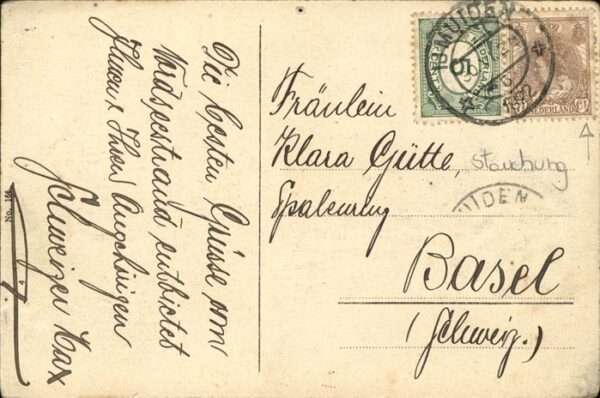 Die besten Grüsse vom
Nordseestrand entbietet
Ihnen & Ihren Angehörigen
Schweizer Max
No. 188
Fräulein
Klara Gütte,
Stauchung
Spalenring
Basel
(Schweiz.)
MUIDEN
5
NEDERLAND
UIDEN